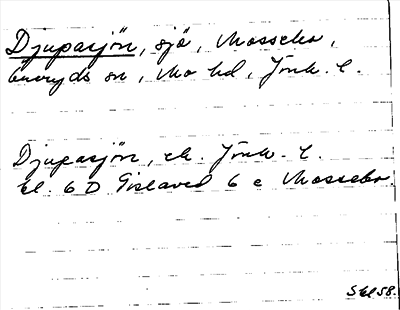 Djupasjön, sjö, Mossebo,
Öreryds sn, Mo hd, Jönk. l.
Djupasjön, ek. Jönk. l.
bl. 6 D Gislaved 6 c Mossebo.
SEl 58.